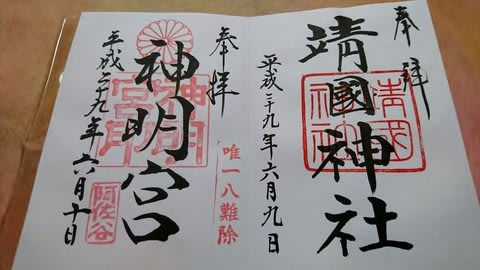 奉拝
靖國神社
平成二十九年六月九日
奉拝
唯一八難除
神明宮
阿佐谷
平成二十九年六月十日